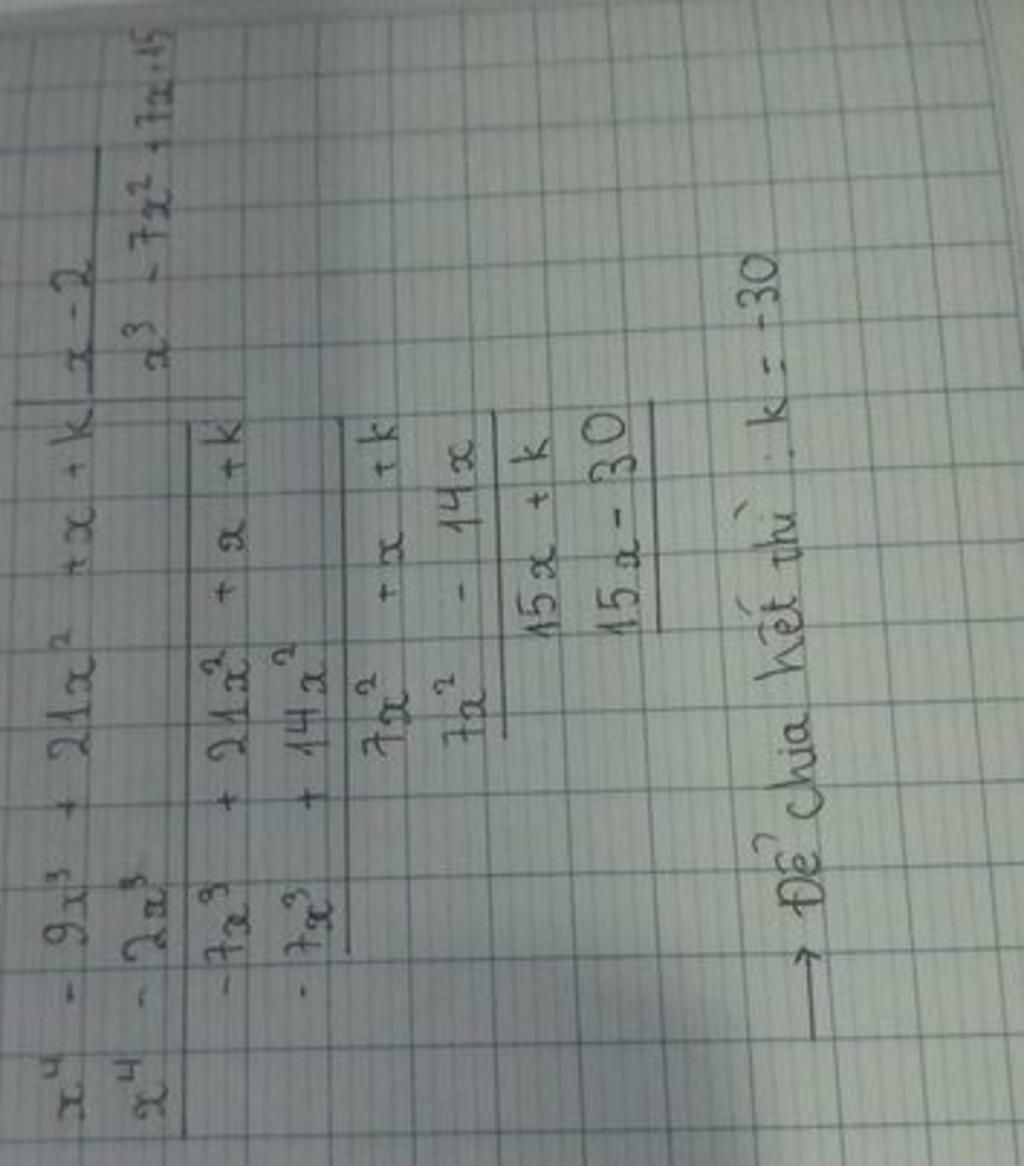 x⁴ - 9x³ + 21x² + x + k | x - 2
x⁴ - 2x³ x³ - 7x² + 7x + 15
- 7x³ + 21x² + x + k
- 7x³ + 14x²
7x² + x + k
7x² - 14x
15x + k
15x - 30
→ Để chia hết thì : k = -30